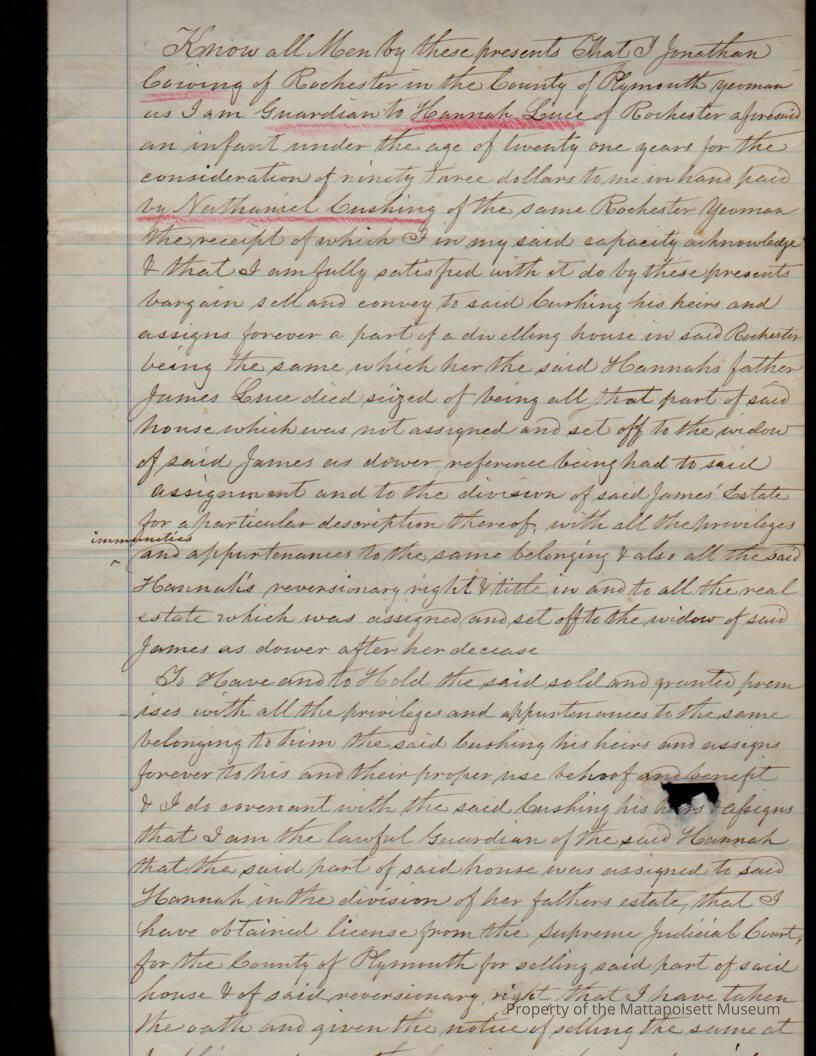 Know all Men by these presents That I Jonathan
Cowing of Rochester in the County of Plymouth yeoman
as I am Guardian to Hannah Luce of Rochester aforesaid
an infant under the age of twenty one years for the
consideration of ninety three dollars to me in hand paid
by Nathaniel Cushing of the same Rochester Yeoman
the receipt of which I in my said capacity acknowledge
& that I am fully satisfied with it do by these presents
bargain sell and convey to said Cushing his heirs and
assigns forever a part of a dwelling house in said Rochester
being the same which her the said Hannahs father
James Luce died seized of being all that part of said
house which was not assigned and set off to the widow
of said James as dower reference being had to said
assignment and to the division of said James' Estate
for a particular description thereof, with all the privileges
immunities
^ and appurtenances to the same belonging & also all the said
Hannah's reversionary right & title in and to all the real
estate which was assigned and set off to the widow of said
James as dower after her decease
To Have and to Hold the said sold and granted prem
ises with all the privileges and appurtenances to the same
belonging to him the said Cushing his heirs and assigns
forever to his and their proper use behoof and benefit
& I do covenant with the said Cushing his assigns
that I am the lawful Guardian of the said Hannah
that the said part of said house was assigned to said
Hannah in the division of her fathers estate, that I
have obtained license from the Supreme Judicial Court,
for the County of Plymouth for selling said part of said
house & of said reversionary right that I have taken
the oath and given the notice of selling the same at
Property of the Mattapoisett Museum